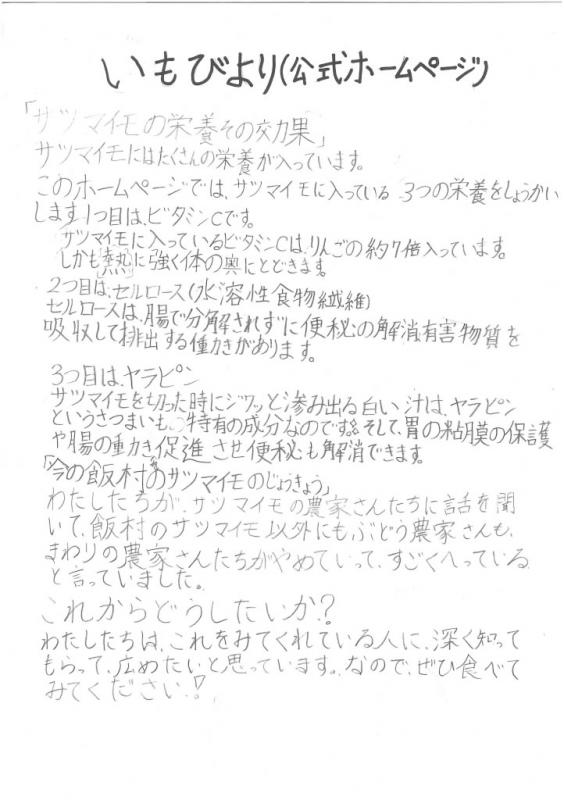 いもびより(公式ホームページ)
「サツマイモの栄養その効果」
サツマイモにはたくさんの栄養が入っています。
このホームページでは、サツマイモに入っている3つの栄養をしょうかい
します1つ目は、ビタミンCです。
サツマイモに入っているビタミンCは、りんごの約7倍入っています。
しかも「熱」に強く体の奥にとどきます。
2つ目は、セルロース(水溶性食物繊維)
セルロースは、腸で分解されずに便秘の解消有害物質を
吸収して排出する働きがあります。
3つ目は、ヤラピン
サツマイモを切った時にジワッと滲み出る白い汁は、ヤラピン
というさつまいも特有の成分なのです。そして、胃の粘膜の保護
や腸の動き促進させ便秘も解消できます。
「今の飯村のサツマイモのじょうきょう」
わたしたちが、サツマイモの農家さんたちに話を聞
いて、飯村のサツマイモ以外にも、ぶどう農家さんも、
まわりの農家さんたちがやめていって、すごくへっている
と言っていました。
これからどうしたいか?
わたしたちは、これをみてくれている人に、深く知って
もらって、広めたいと思っています。なので、ぜひ食べて
みてください!